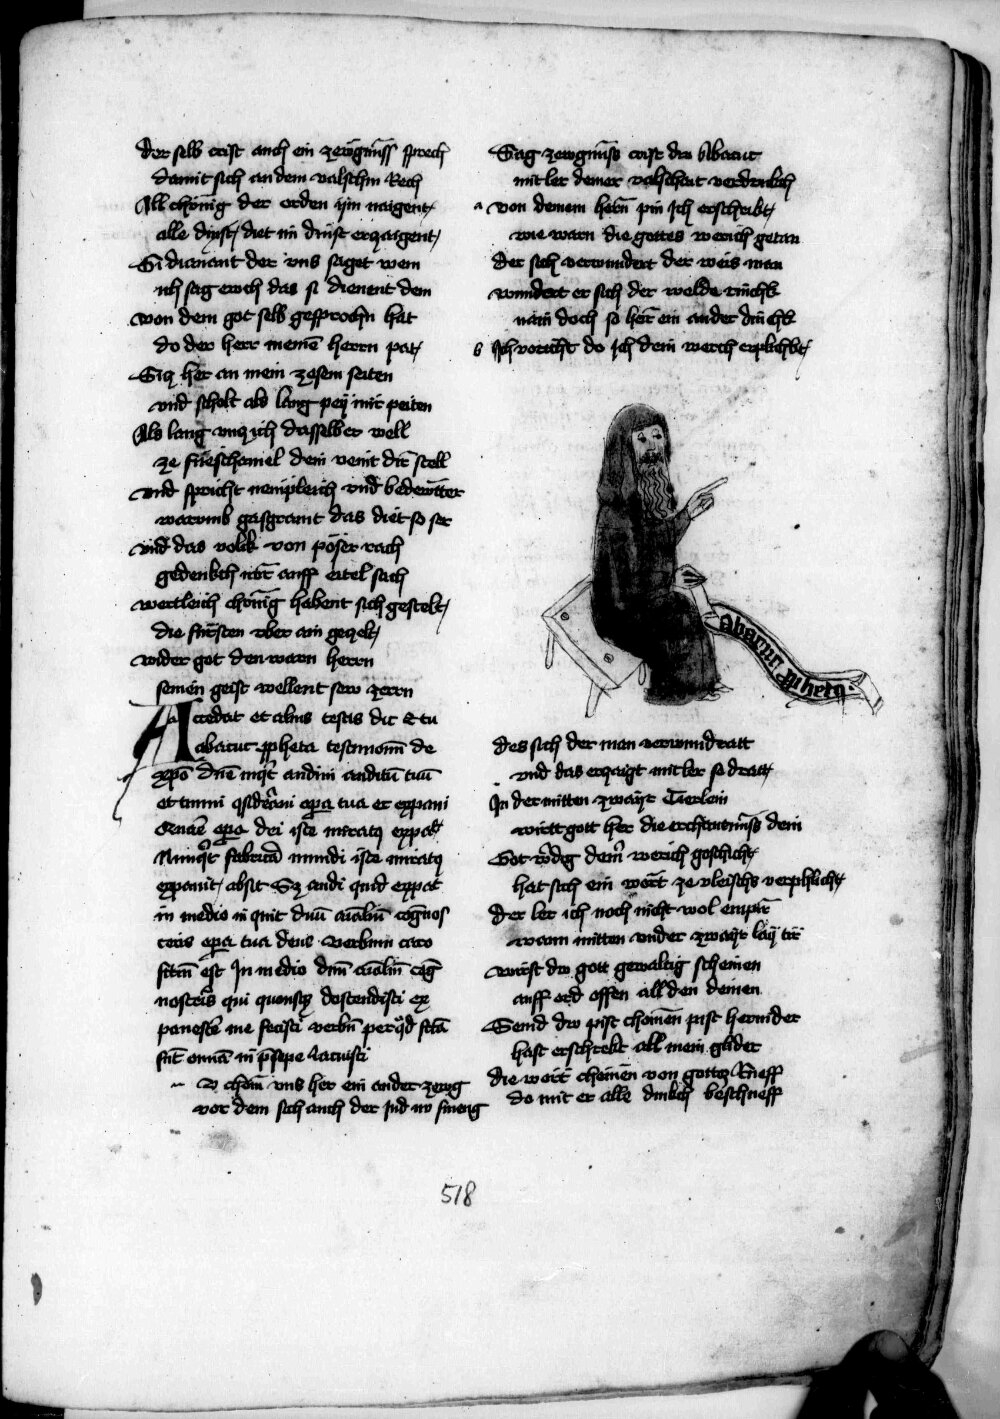 Der selb crist auch ein zewgnuss sprech
damit sich an dem valschm Rech
All chönig der orden ym naigent
alle dinst diet im dinst erzaigent
Si dienant der uns saget wem
ich sag ewch das si dienent dem
von dem got selb gesprochn hat
do der herr meinē herrn pat
Sicz her an mein zesem seiten
und scholt als lang peÿ mir peiten
Als lang uncz ich dasselber well
ze fueschamel dein veint dir stell
und spricht nempleich und bedewter
warumb gasgramt das diet so ser
und das volck von pöser rach
gedenkch auff eitel sach
wertleich chönig habent sich gestelt
die fürsten uber ain gezelt
wider got den warn herrn
seinen geist wellent sew zerrn
Accedat et alius testis dic et tu
abacuc ppheta testimoniū de
xpō Dnē inqt audiui auditū tuū
et timui qsideraui opa tua et expaui
Quaē opa dei iste miratq expa
Nunqt fabricā mundi iste miratq
expauit absit Sz audi quid expat
in medio in quit duū aialiū cognos
ceris opa tua deus verbum caro
fctm est In medio duū aialiū cog
nosceris qui quousqz descendisti ex
pauescē me fecisti verbū per qd fctā
sūt omīa in psepe iacuisti
u chem uns her ein ander zewg
vor dem sich auch der iud nu smeng
Sag zewgnuss crist du Abacuc
mit ler deiner valschait verdrukch
a von deinem herrn pin ich erschrikt
wie warn die gottes werich getan
Der sich verwundert der weis man
wundert er sich der welde
nain doch so herr ein ander dinchk
b Ich voricht do ich dein werch erplichkt
abacuc ppheta
des sich der man verwundratt
und das erczaigt mit ler so dratt
In der mitten zwaÿr Tierlein
wirtt gott her die erchantnuss dein
Got deinr werich geschicht
hat sich ein wort ze vleischs verphlicht
Der ler ich noch nicht wol enpir
wann mitten under zwaÿr laÿ tir
wirst du gott gewaltig scheinen
auff erd offen all den deinen
Seind du pist chomen pist hernider
hast erschrekt all mein glider
die wort chomen von gottes Rueff
do mit er alle dinkch beschueff
518